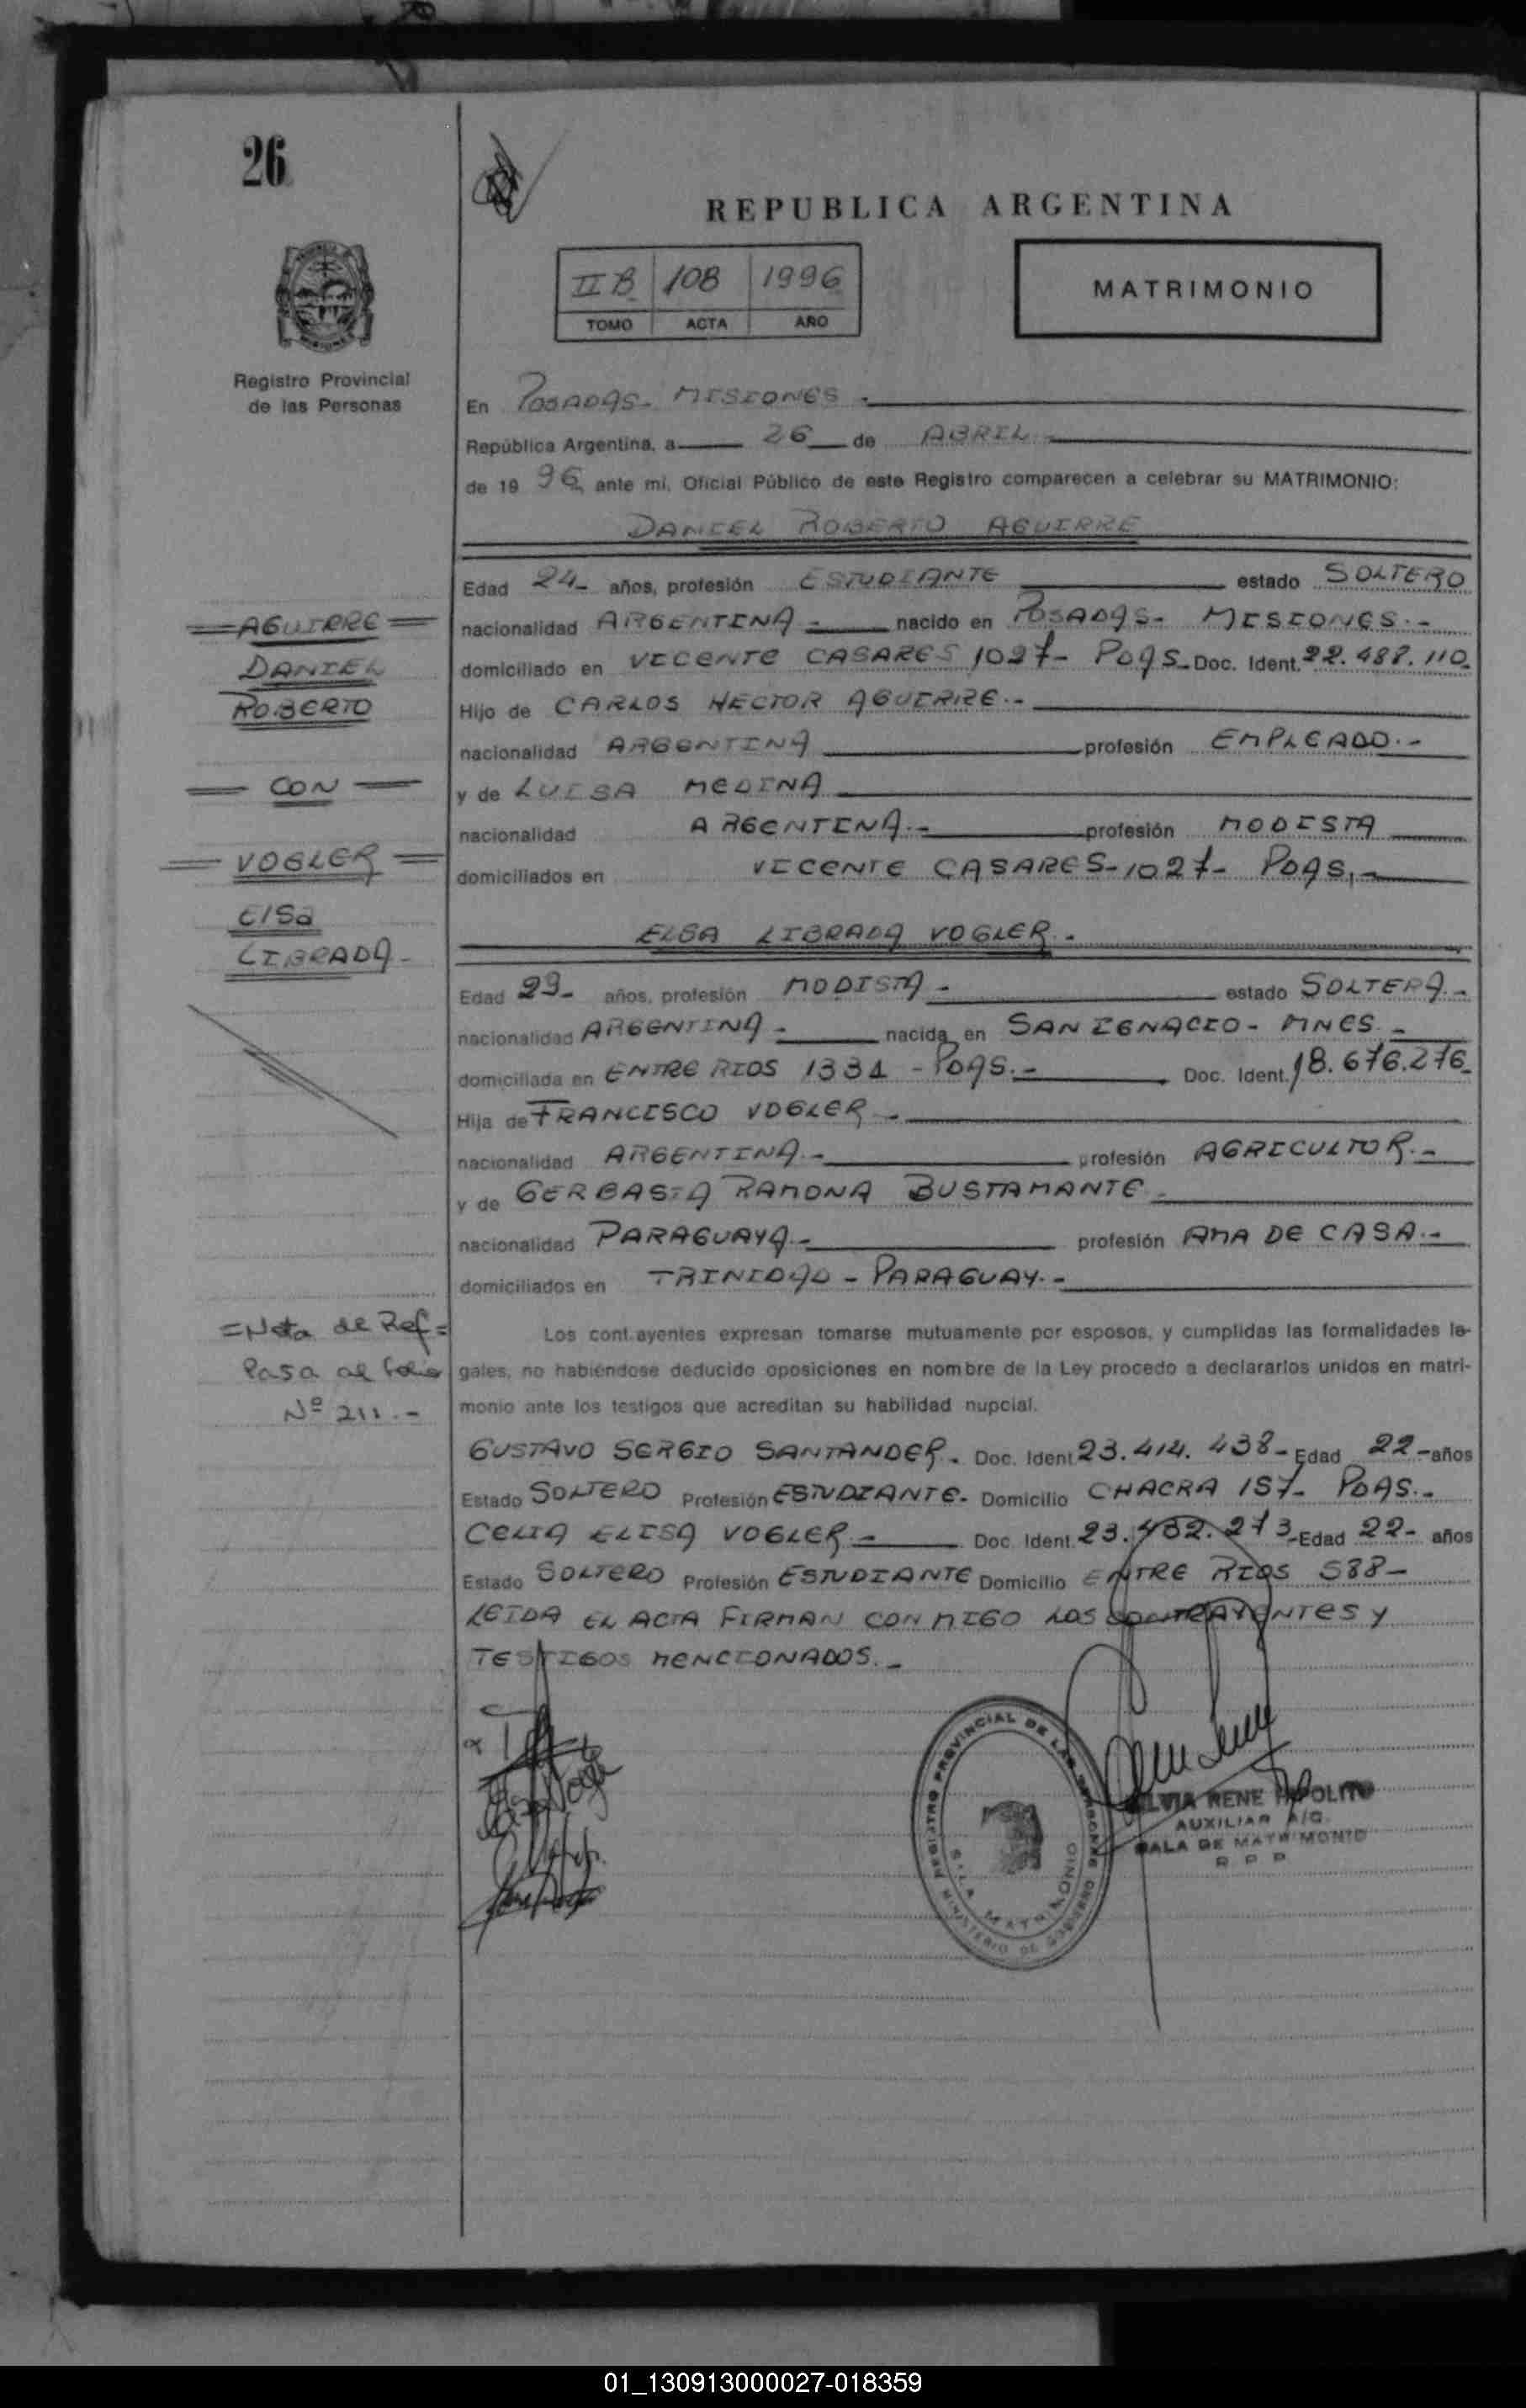 26
REPUBLICA ARGENTINA
II B 108 1996
TOMO ACTA AÑO
MATRIMONIO
Registro Provincial
de las Personas
En POSADAS - MISIONES.-
República Argentina, a 26 de ABRIL.-
de 19 96, ante mí, Oficial Público de este Registro comparecen a celebrar su MATRIMONIO:
DANIEL ROBERTO AGUIRRE
Edad 24- años, profesión ESTUDIANTE estado SOLTERO
nacionalidad ARGENTINA- nacido en POSADAS- MISIONES.-
domiciliado en VICENTE CASARES 1027- PDAS- Doc. Ident. 22.488.110
Hijo de CARLOS HECTOR AGUIRRE.-
nacionalidad ARGENTINA profesión EMPLEADO.-
y de LUISA MEDINA
nacionalidad ARGENTINA.- profesión MODISTA
domiciliados en VICENTE CASARES-1027- PDAS.-
=AGUIRRE=
DANIEL
ROBERTO
= CON =
= VOGLER =
ElSa
LIBRADA-
ELSA LIBRADA VOGLER.-
Edad 29- años, profesión MODISTA- estado SOLTERA.-
nacionalidad ARGENTINA- nacida en SAN IGNACIO- MNES.-
domiciliada en ENTRE RIOS 1331 - PDAS.- Doc. Ident. 18.676.276
Hija de FRANCISCO VOGLER-
nacionalidad ARGENTINA.- profesión AGRICULTOR.-
y de GERBASIA RAMONA BUSTAMANTE-
nacionalidad PARAGUAYA.- profesión AMA DE CASA.-
domiciliados en TRINIDAD - PARAGUAY.-
=Nota de Ref=
Pasa al folio
Nº 211.-
Los contrayentes expresan tomarse mutuamente por esposos, y cumplidas las formalidades le-
gales, no habiéndose deducido oposiciones en nombre de la Ley procedo a declararlos unidos en matri-
monio ante los testigos que acreditan su habilidad nupcial.
GUSTAVO SERGIO SANTANDER. Doc. Ident. 23.414.438- Edad 22- años
Estado SOLTERO Profesión ESTUDIANTE- Domicilio CHACRA 157- PDAS.-
CELIA ELISA VOGLER- Doc. Ident. 23.432.273- Edad 22- años
Estado SOLTERO Profesión ESTUDIANTE Domicilio ENTRE RIOS 588-
LEIDA EL ACTA FIRMAN CONMIGO LOS CONTRAYENTES Y
TESTIGOS MENCIONADOS.-
REGISTRO PROVINCIAL DE LAS PERSONAS
SALA MATRIMONIO
MINISTERIO DE GOBIERNO
SILVIA RENE HIPOLITO
AUXILIAR A/C
SALA DE MATRIMONIO
R. P. P.
01_130913000027-018359